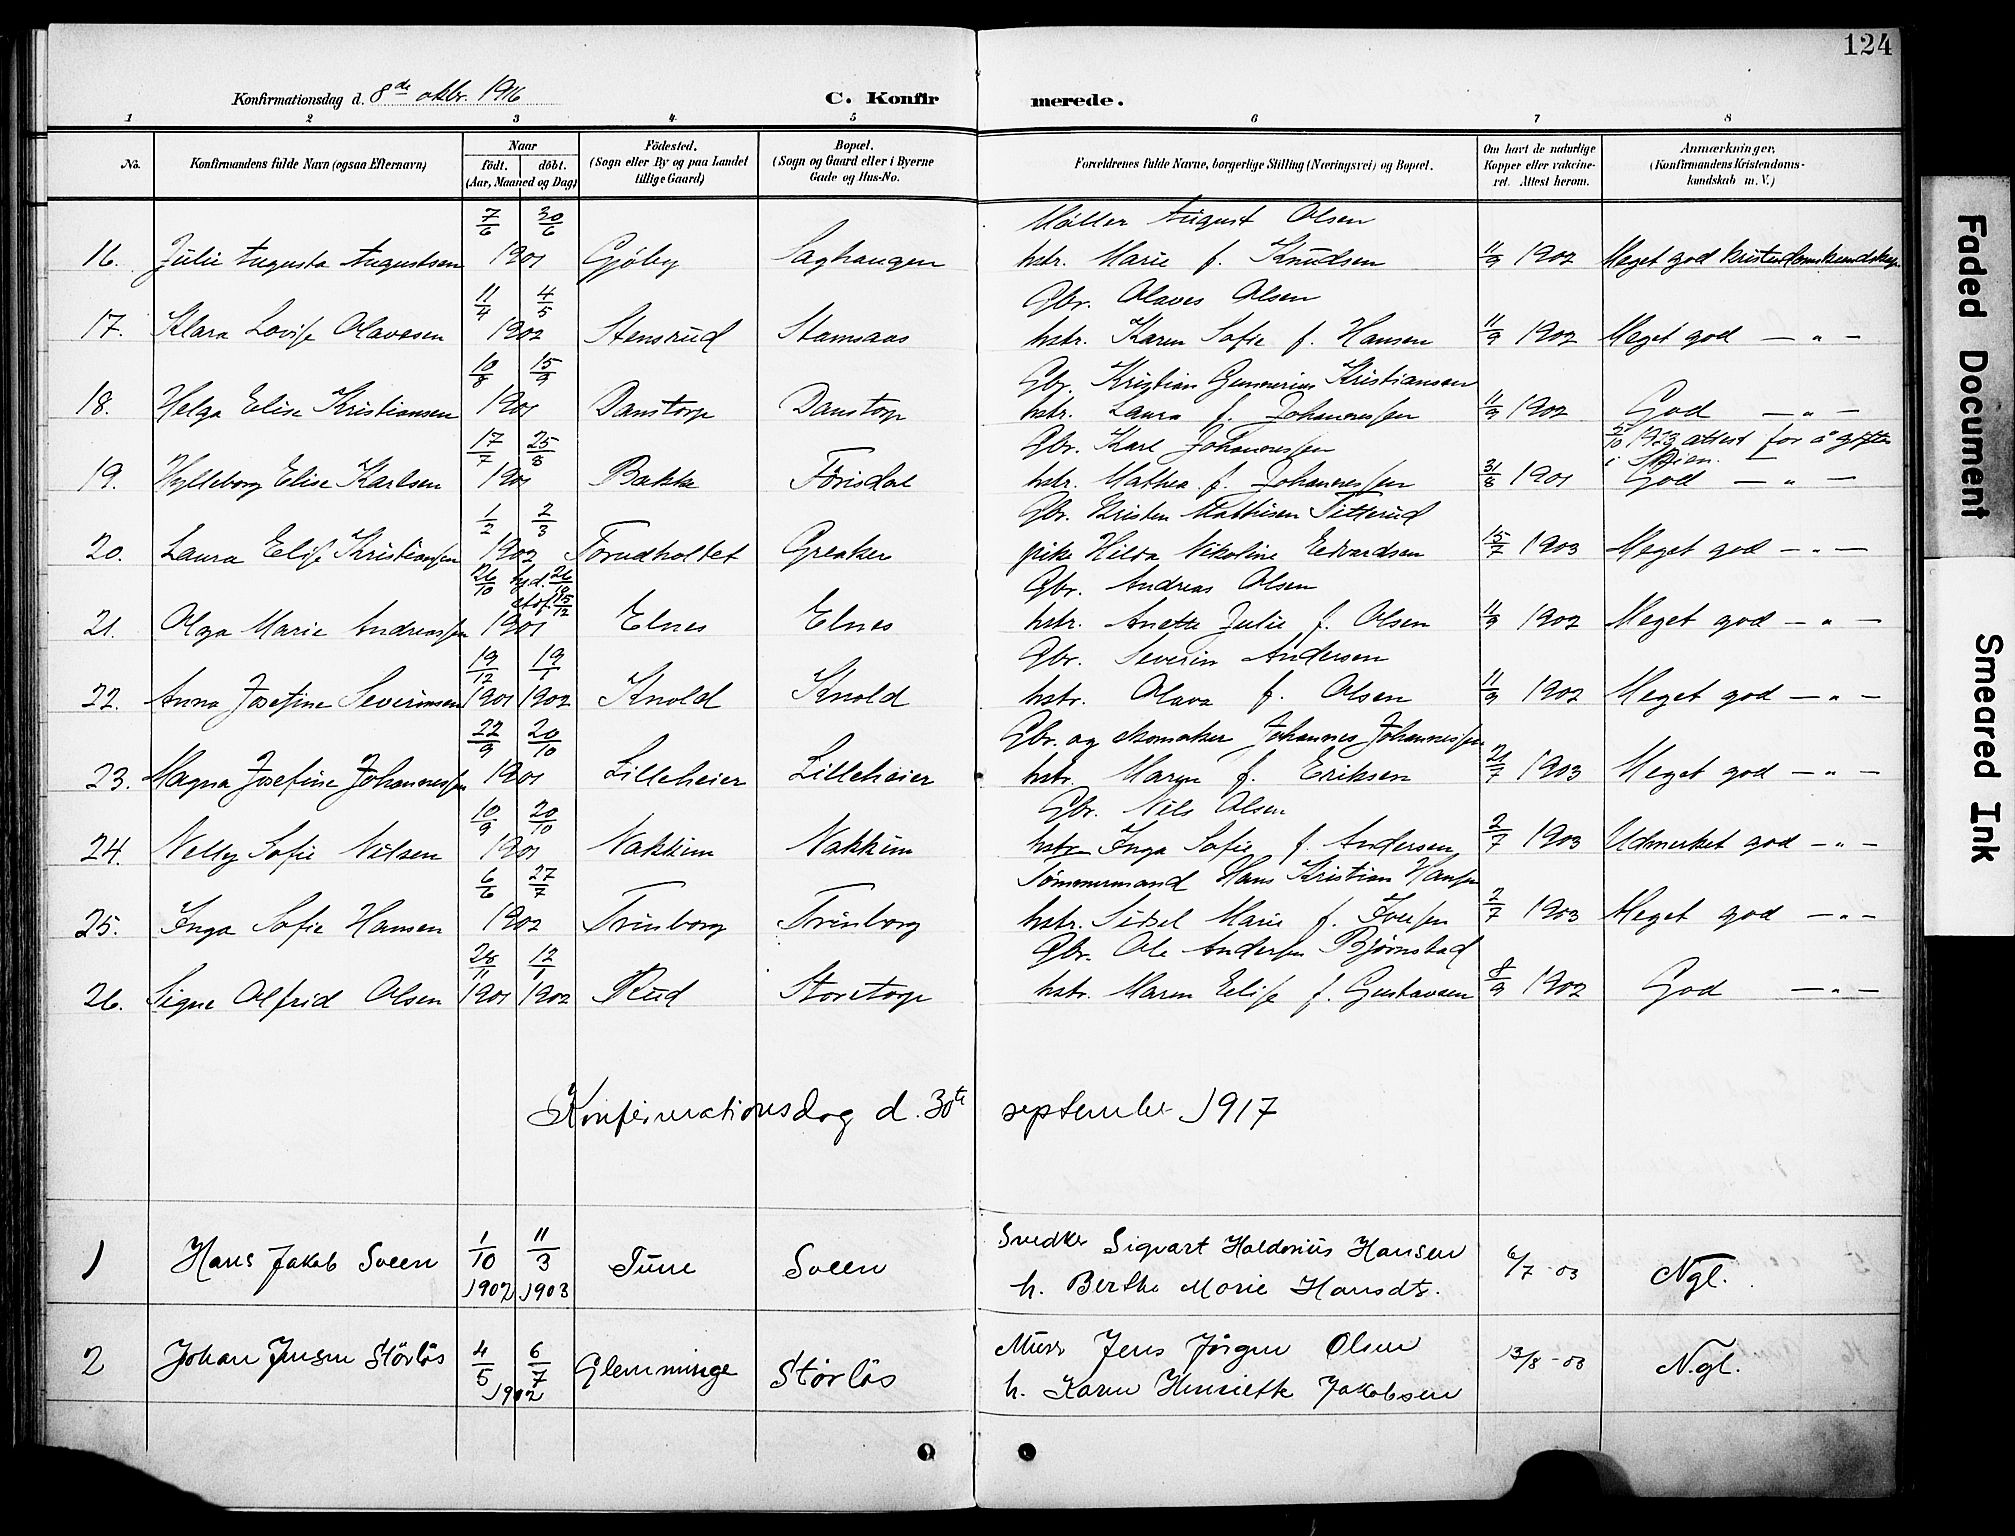 124
Konfirmationsdag d. 8de oktbr. 1916 C. Konfirmerede.
1 2 3 4 5 6 7 8
No. Konfirmandens fulde Navn (ogsaa Efternavn) Naar født. døbt. (Aar, Maaned og Dag) Fødested. (Sogn eller By og paa Landet tillige Gaard) Bopæl. (Sogn og Gaard eller i Byerne Gade og Hus-No. Forældrenes fulde Navne, borgerlige Stilling (Næringsvei) og Bopæl. Om havt de naturlige Kopper eller vakcineret. Attest herom. Anmærkninger, (Konfirmandens Kristendomskundskab m. V.)
7/6 30/6 Møller August Olsen
16. Julie Augusta Augustsen 1901 Gjøby Saghaugen hstr. Marie f. Knudsen 11/9 1902 Meget god kristendomskundskap
11/4 4/5 Gbr. Olaves Olsen
17. Klara Lovise Olavesen 1902 Stensrud Stamsaas hstr. Karen Sofie f. Hansen 11/9 1902 Meget god — " —
10/8 15/9 Gbr. Kristian Gunnerius Kristiansen
18. Helga Elise Kristiansen 1901 Danstorp Danstorp hstr. Laura f. Johannessen 11/9 1902 God — " —
17/7 25/8 Gbr. Karl Johannessen 5/10 1923 attest for å giftes
i Skien.
19. Hylleborg Elise Karlsen 1901 Bakke Förisdal hstr. Mathea f. Johannessen 31/8 1901 God — " —
1/2 2/3 Gbr. Kristen Mathisen Titterud
20. Laura Elise Kristiansen 1902 Torudholtet Greaker pike Hilda Nikoline Edvardsen 15/7 1903 Meget god — " —
26/10 hjd. 26/10 stdf. 15/12 Gbr. Andreas Olsen
21. Olga Marie Andreassen 1901 Elnes Elnes hstr. Anette Julie f. Olsen 11/9 1902 Meget god — " —
19/12 19/1 Gbr. Severin Andersen
22. Anna Josefine Severinsen 1901 1902 Knold Knold hstr. Olava f. Olsen 11/9 1902 Meget god — " —
22/9 20/10 Gbr. og skomaker Johannes Johannessen
23. Magna Josefine Johannessen 1901 Lilleheier Lilleheier hstr. Maren f. Eriksen 21/7 1903 Meget god — " —
10/9 20/10 Gbr. Nils Olsen
24. Nelly Sofie Nilsen 1901 Nakkim Nakkim hstr. Inga Sofie f. Andersen 2/7 1903 Udmerket god — " —
6/6 27/7 Tømmermand Hans Kristian Hansen
25. Inga Sofie Hansen 1902 Trinborg Trinborg hstr. Sidsel Marie f. Iversen 2/7 1903 Meget god — " —
28/11 12/1 Gbr. Ole Andersen Bjørnstad
26. Signe Alfrid Olsen 1901 1902 Rud Storetorp hstr. Maren Elise f. Gustavsen 8/9 1902 God — " —
Konfirmationsdag d. 30te september 1917
1/10 11/3 Snedker Sigvart Haldorius Hansen
1 Hans Jakob Sveen 1902 1903 Tune Sveen h. Berthe Marie Hansdt. 6/7 - 03 Ngl.
4/5 6/7 Murer Jens Jörgen Olsen
2 Johan Jensen Störlös 1902 Glemminge Störlös h. Karen Henriette Jakobsen 13/8 - 03 N.gl.
Faded Document
Smeared Ink